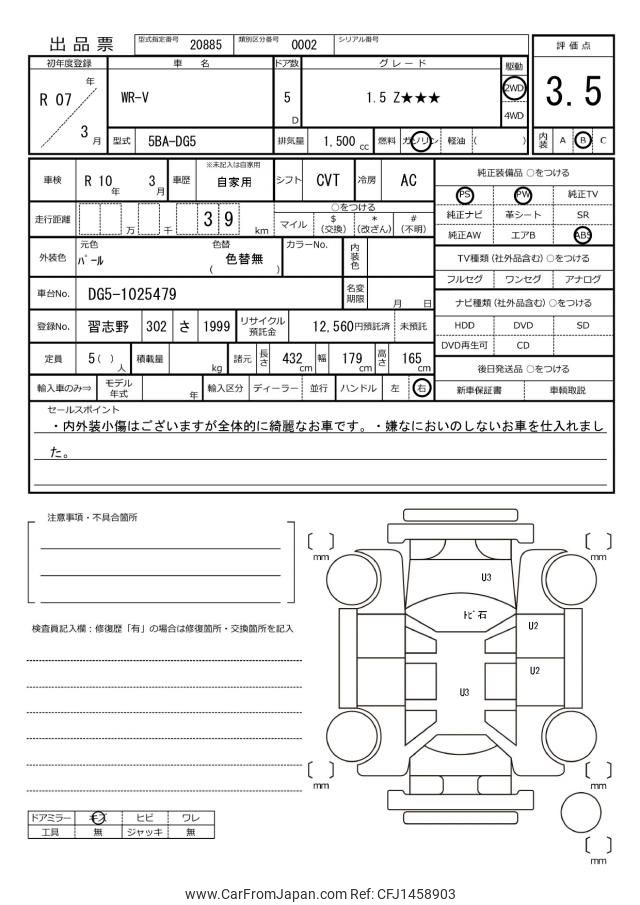 出品票 型式指定番号 20885 類別区分番号 0002 シリアル番号
評価点
3.5
内装 A B C
初年度登録 車名 ドア数 グレード 駆動
R 07 年 3 月 WR-V 5 D 1.5 Z★★★ 2WD 4WD
型式 5BA-DG5 排気量 1,500 cc 燃料 ガソリン 軽油 ( )
車検 R 10 年 3 月 車歴 ※未記入は自家用 自家用 シフト CVT 冷房 AC
走行距離 万 千 3 9 km ○をつける
マイル $ (交換) * (改ざん) # (不明)
外装色 元色 パール 色替 ( 色替無 ) カラーNo. 内装色
車台No. DG5-1025479 名変期限 月 日
登録No. 習志野 302 さ 1999 リサイクル預託金 12,560円預託済 未預託
定員 5 ( ) 人 積載量 kg 諸元 長さ 432 cm 幅 179 cm 高さ 165 cm
輸入車のみ⇒ モデル年式 年 輸入区分 ディーラー 並行 ハンドル 左 右
純正装備品 ○をつける
PS PW 純正TV
純正ナビ 革シート SR
純正AW エアB ABS
TV種類 (社外品含む) ○をつける
フルセグ ワンセグ アナログ
ナビ種類 (社外品含む) ○をつける
HDD DVD SD
DVD再生可 CD
後日発送品 ○をつける
新車保証書 車輌取説
セールスポイント
・内外装小傷はございますが全体的に綺麗なお車です。・嫌なにおいのしないお車を仕入れまし
た。
注意事項・不具合箇所
検査員記入欄：修復歴「有」の場合は修復箇所・交換箇所を記入
mm
mm
U3
トビ石
U2
U2
U3
mm
mm
mm
ドアミラー キズ ヒビ ワレ
工具 無 ジャッキ 無
www.CarFromJapan.com Ref: CFJ1458903